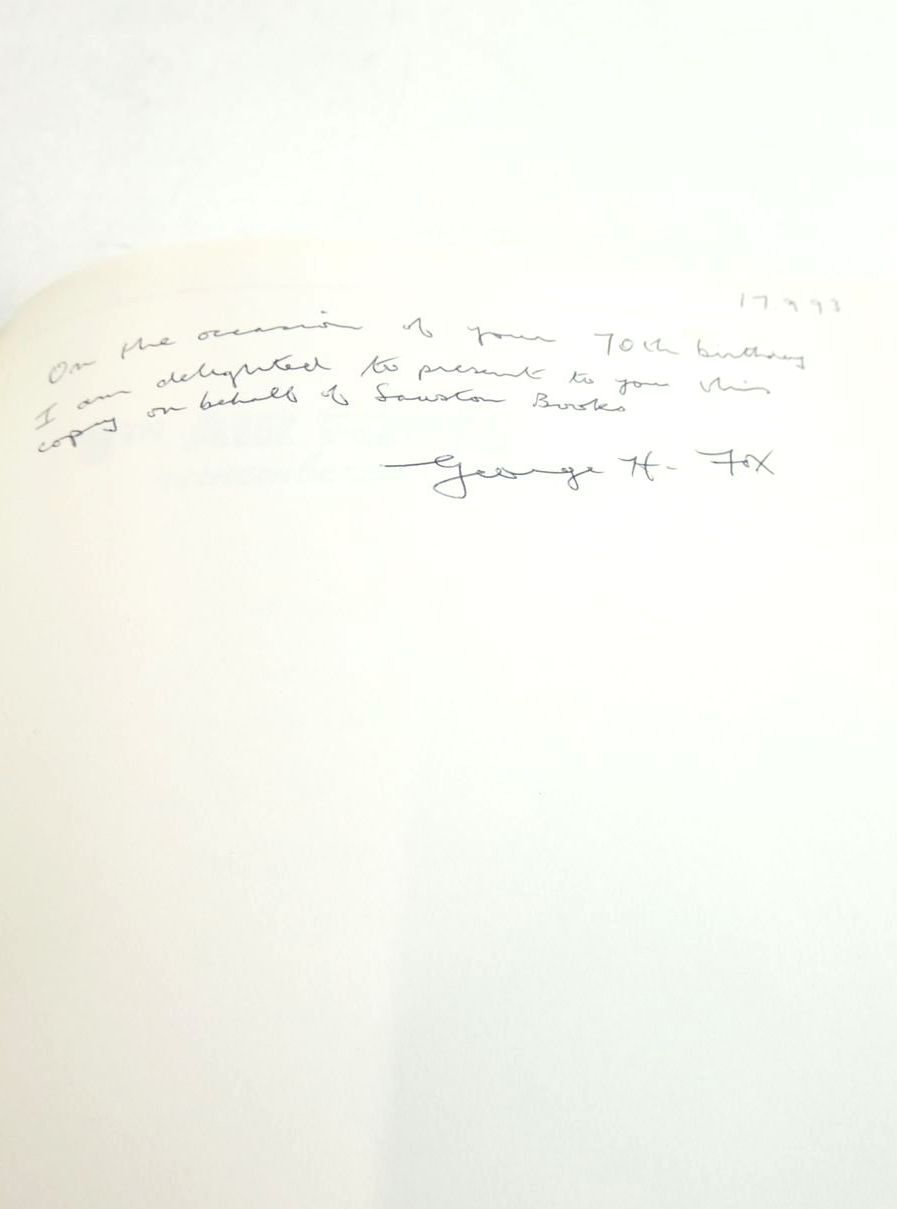 17.9.93
On the occasion of your 70th birthday
I am delighted to present to you this
copy on behalf of Sawston Books
George H. Fox